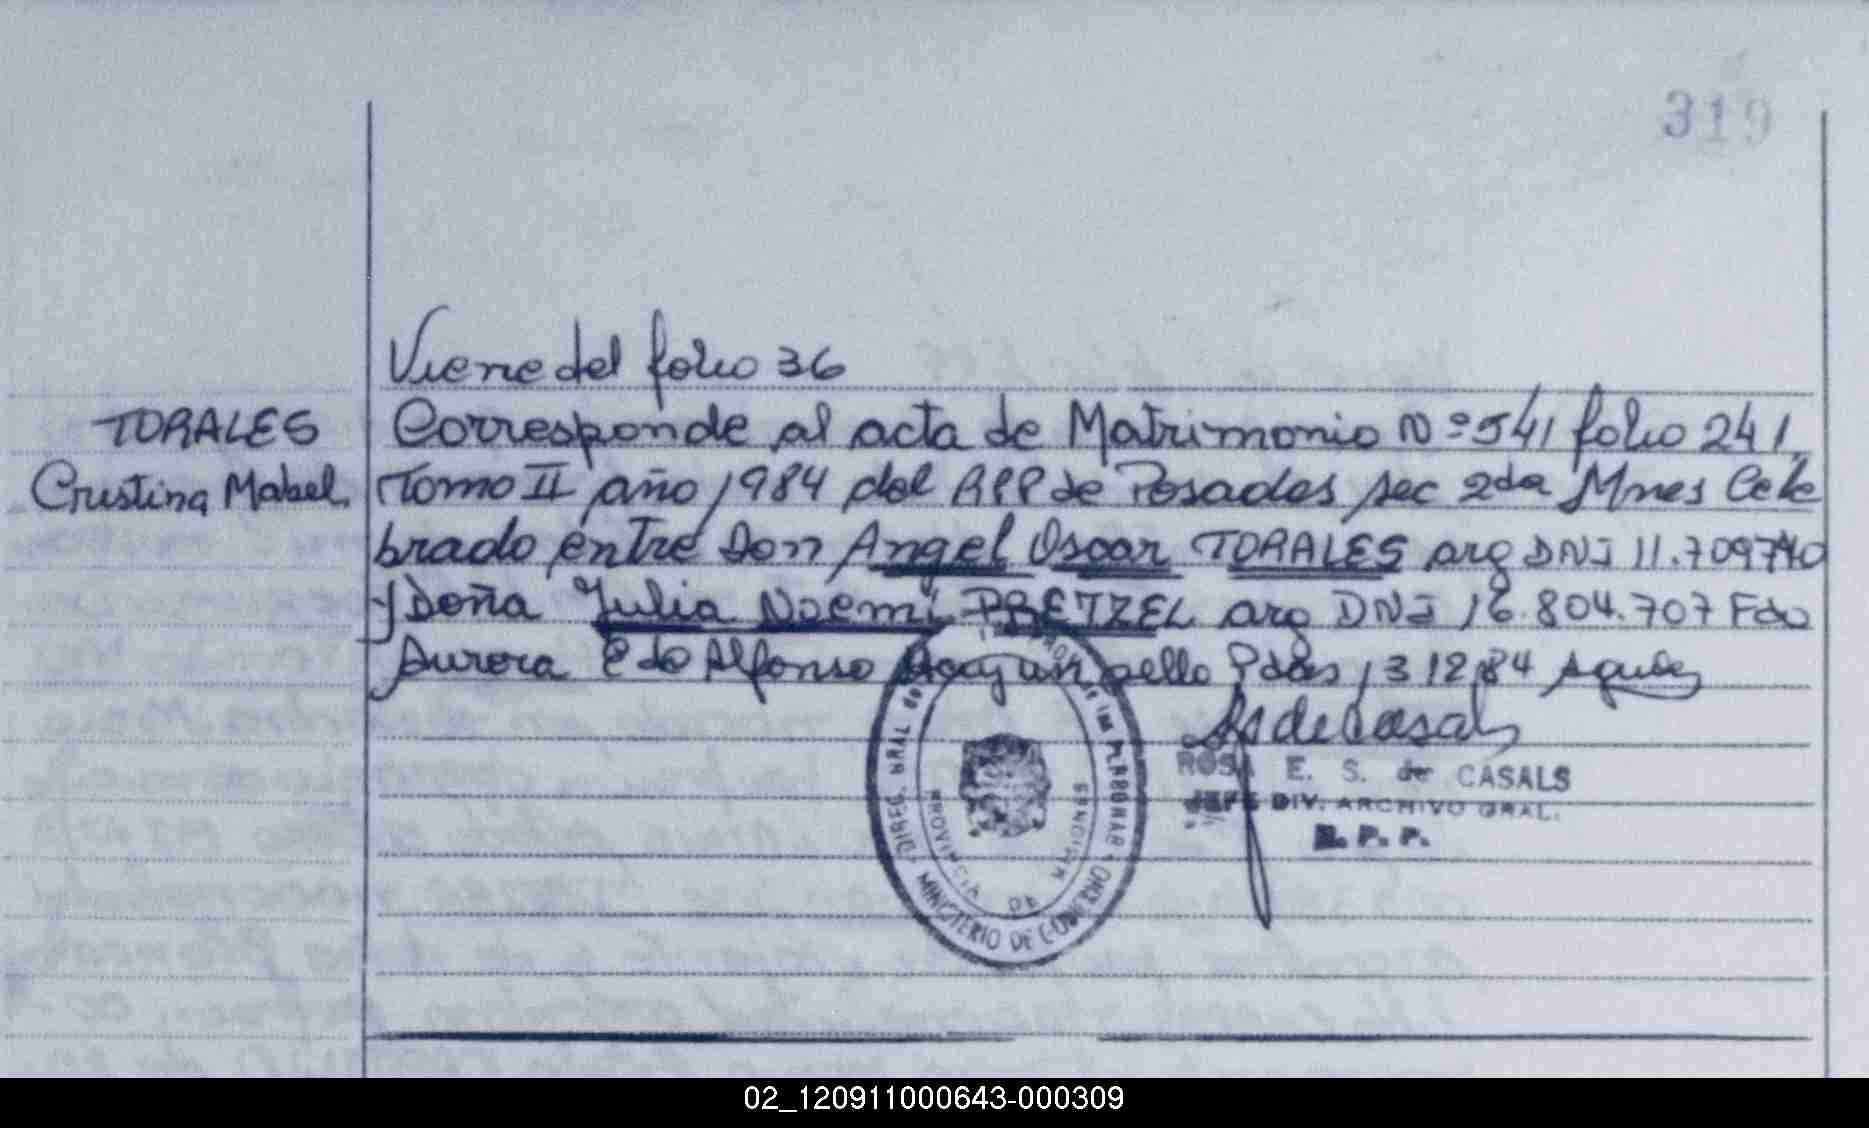 319
Viene del folio 36
TORALES
Cristina Mabel
Corresponde al acta de Matrimonio Nº 541 folio 241
Tomo II año 1984 del RPP de Posadas sec 2da Mnes Cele
brado entre Don Angel Oscar TORALES arg DNI 11.709740
y Doña Julia Noemi PRETZEL arg DNI 16.804.707 Fdo
Aurora E de Alfonso Hay un sello Pdas 13 12 84
RsdeCasals
ROSA E. S. de CASALS
JEFE DIV. ARCHIVO GRAL.
R. P. P.
DIREC. GRAL DEL
MINISTERIO DE GOBIERNO
PROVINCIA DE MISIONES
02_120911000643-000309